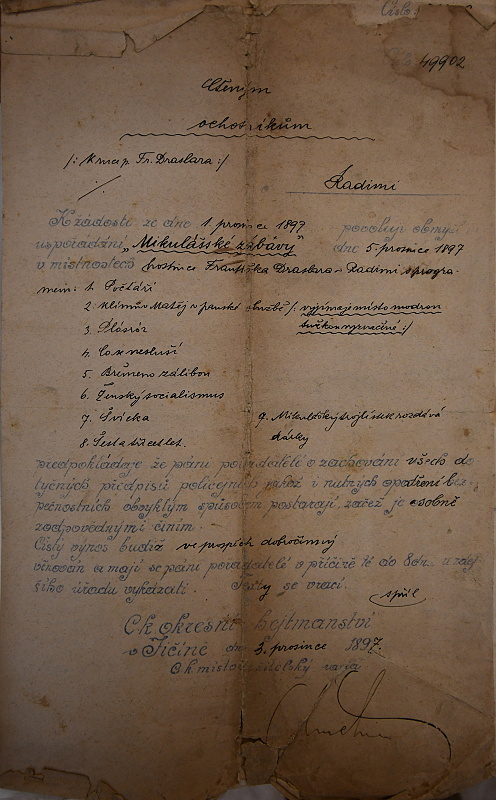 Číslo
49902
Cteným
ochotníkům
/: k ruc. p. Fr. Draslara :/
Radimi
K žádosti ze dne 1. prosince 1897 povoluji
uspořádání „Mikulášské zábavy“ dne 5. prosince 1897
v místnostech hostince Františka Draslara v Radimi s progra-
mem: 1. Počtáři
2. Klimův Matěj v panské službě /: vyjímaje místo modrou
tužkou vyznačené :/
3.
4. Co se nesluší
5. Břemeno zálibou
6. Ženský socialismus
7. Švička
8. Šestatřicet let.
9. Mikulášský trojlístek rozdává
dárky
předpokládaje, že páni pořadatelé o zachování všech do
tyčných předpisů policejních jakož i nutných opatření bez-
pečnostních obvyklým spůsobem postarají, začež je osobně
zodpovědnými činím.
Čistý výnos budiž ve prospěch dobročinný
věnován a mají se páni pořadatelé v příčině té do 8 dnů u zdej-
šího úřadu vykázati. Texty se vrací.
C. k. okresní hejtmanství
v Jičíně dne 3. prosince 1897.
C. k. místodržitelský rada